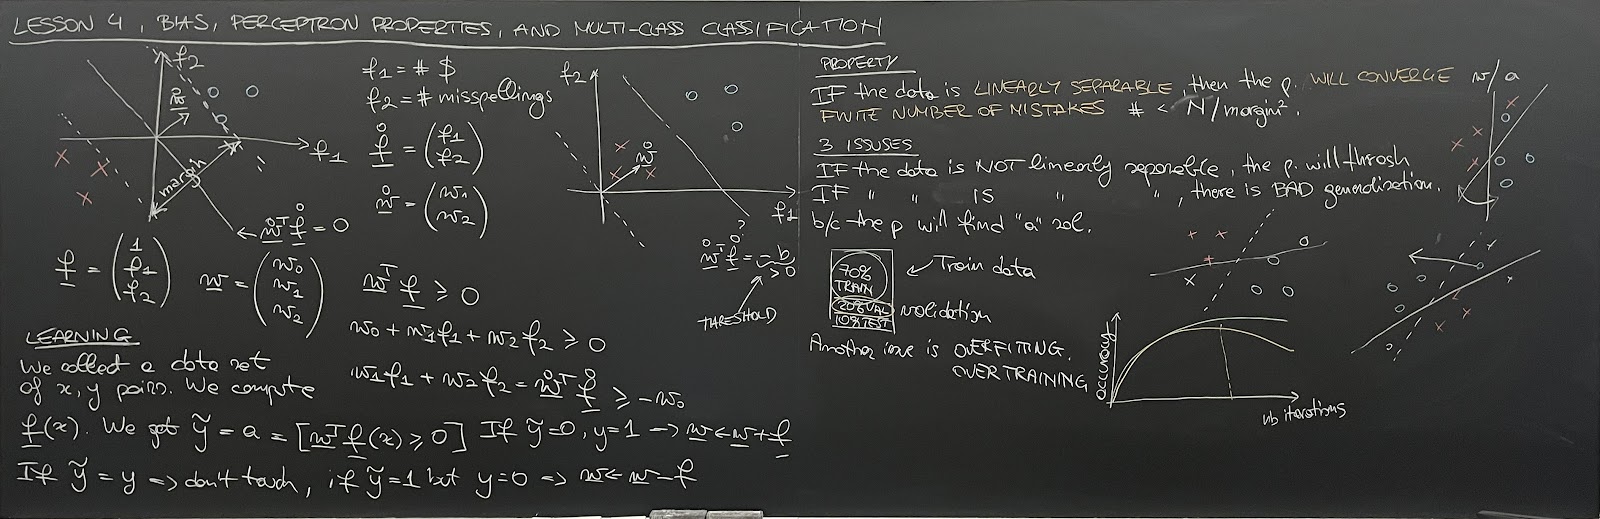 LESSON 4, BIAS, PERCEPTRON PROPERTIES, AND MULTI-CLASS CLASSIFICATION
f2
w
f1
margin
ẘᵀ f̊ = 0
f1 = # $
f2 = # misspellings
f̊ = (f1 f2)
ẘ = (w1 w2)
f = (1 f1 f2) w = (w0 w1 w2) wᵀ f ≥ 0
w0 + w1f1 + w2f2 ≥ 0
w1f1 + w2f2 = ẘᵀ f̊ ≥ -w0
f2
ẘ
f1
?
ẘᵀ f̊ = -b
> 0
THRESHOLD
LEARNING
We collect a data set
of x, y pairs. We compute
f(x). We get ỹ = a = [wᵀf(x) ≥ 0] If ỹ=0, y=1 → w ← w + f
If ỹ = y => don't touch, if ỹ=1 but y=0 => w ← w - f
PROPERTY
IF the data is LINEARLY SEPARABLE, then the p. WILL CONVERGE w/ a
FINITE NUMBER OF MISTAKES # < N/margin².
3 ISSUSES
IF the data is NOT linearly separable, the p. will thrash
IF " " IS " ", there is BAD generalization.
b/c the p will find "a" sol.
70%
TRAIN
20% VAL
10% TEST
Train data
validation
Another issue is OVERFITTING.
OVERTRAINING
accuracy
nb iterations